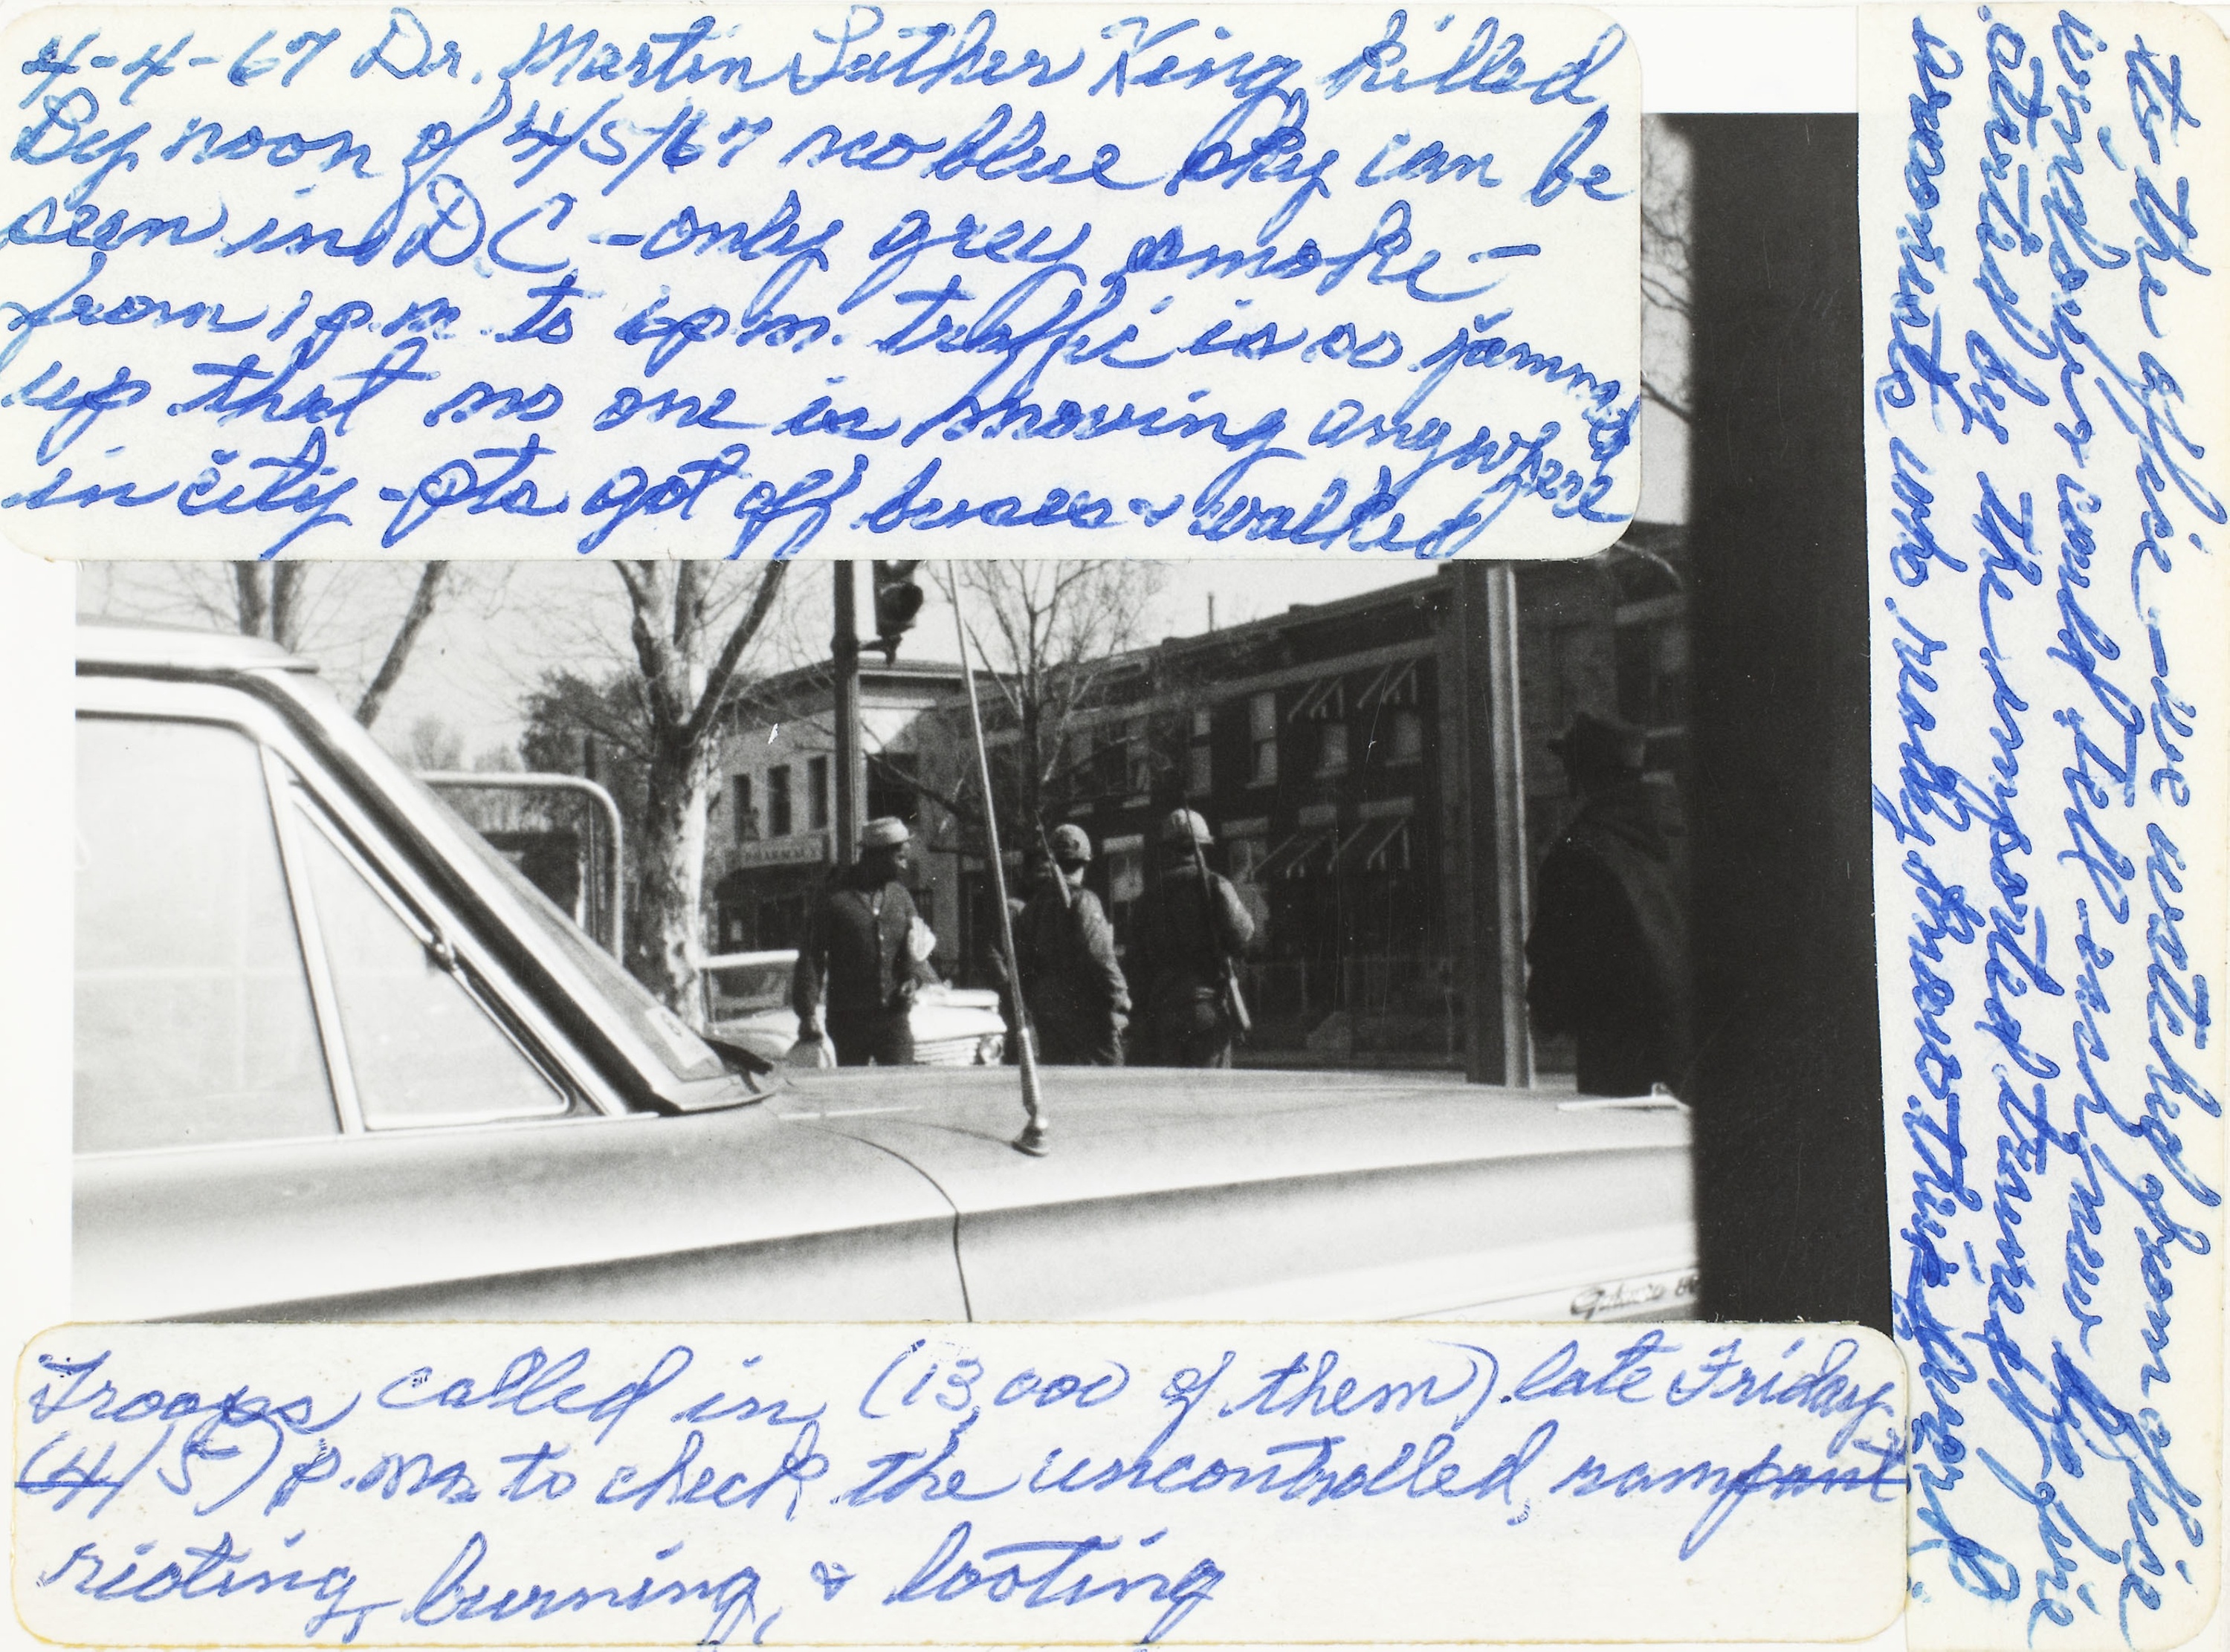 4-4-67 Dr. Martin Luther King killed
By noon of 4/5/67 no blue sky can be
seen in DC - only grey smoke -
from 1 p.m. to 6 p.m. traffic is so jammed
up that no one is moving anywhere
in city - pts got off buses & walked
to the office - we watched from office
windows & could tell each new big fire
started by the imported trained
arsonists who really know
PHARMACY
Galaxie
Troops called in (13,000 of them) late Friday
(4/5) p.m. to check the uncontrolled, rampant
rioting, burning, & looting